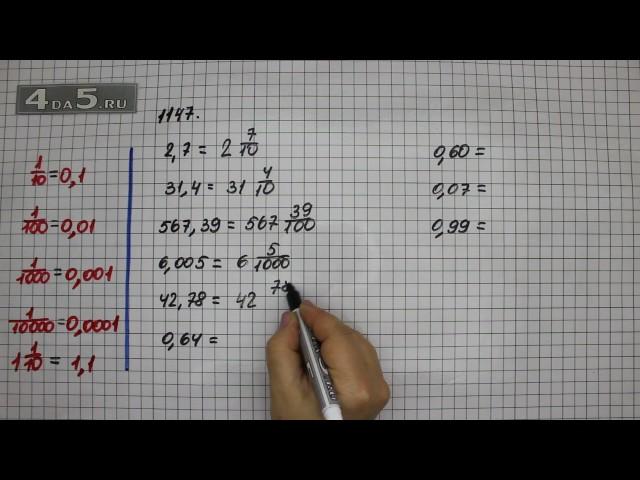 4DA5.RU
1147.
1/10 = 0,1
1/100 = 0,01
1/1000 = 0,001
1/10000 = 0,0001
1 1/10 = 1,1
2,7 = 2 7/10
31,4 = 31 4/10
567,39 = 567 39/100
6,005 = 6 5/1000
42,78 = 42 78
0,64 =
0,60 =
0,07 =
0,99 =